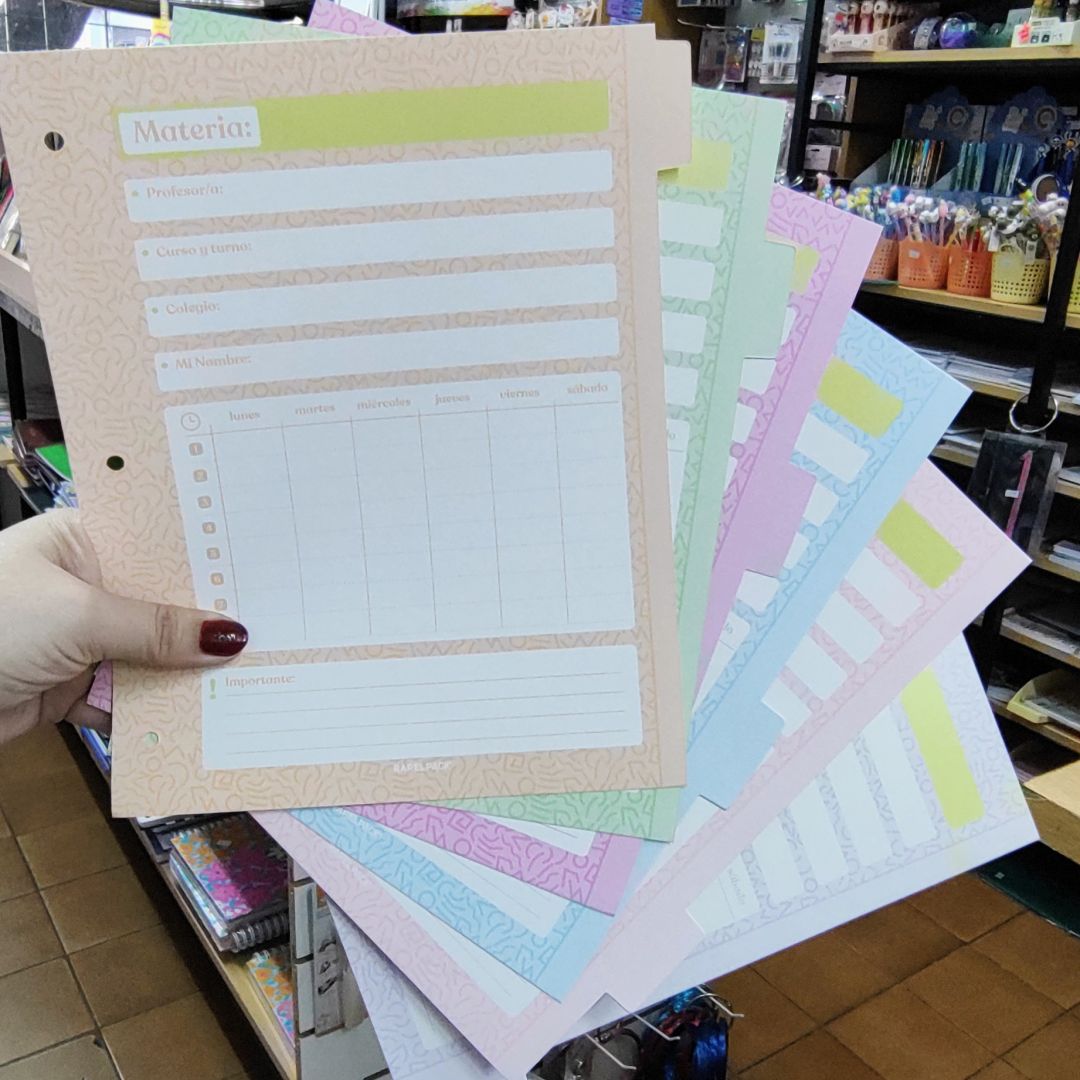 Materia:
Profesor/a:
Curso y turno:
Colegio:
Mi Nombre:
lunes martes miércoles jueves viernes sábado
1
2
3
4
5
6
7
Importante:
RAPELPACK
sábado